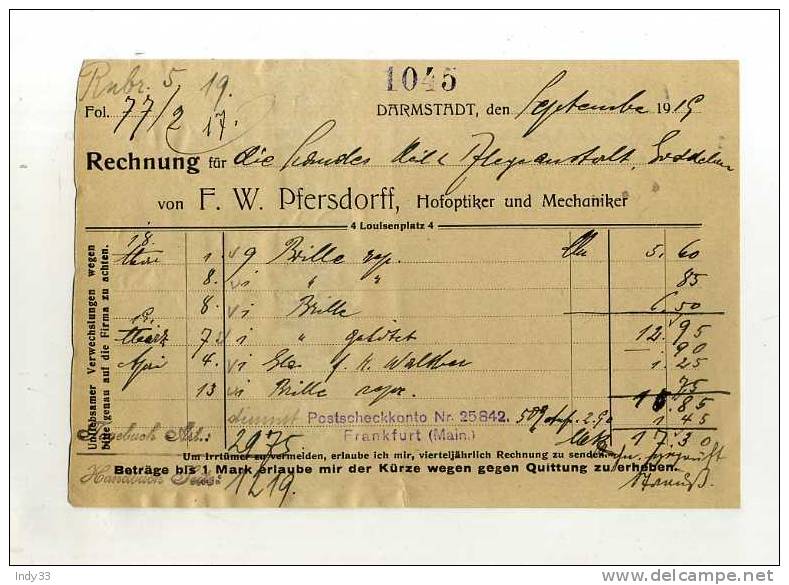 Rubr. 5 19.
1045
Fol. 77/2 17.
DARMSTADT, den September 1919
Rechnung für die Landes Heil & Pflegeanstalt, Goddelau
von F. W. Pfersdorff, Hofoptiker und Mechaniker
4 Louisenplatz 4
Unliebsamer Verwechslungen wegen
bitte genau auf die Firma zu achten.
18.
1. 9 Brille rep. 5. 60
8. 1 " " 85
8. 1 Brille 6.50
19. 12. 95
März 7 1 " gelötet 90
April 4. 1 Glas f. H. Walther 1. 25
13 Brille repr. 75
15. 85
dienst Postscheckkonto Nr. 25842. 50% 2.90 1 45
Frankfurt (Main.) 17. 30
Tagebuch Nr.: 2975
Um Irrtümer zu vermeiden, erlaube ich mir, vierteljährlich Rechnung zu senden.
Beträge bis 1 Mark erlaube mir der Kürze wegen gegen Quittung zu erheben.
Handbuch Seite: 1219.
Strauß.
Indy33
delcampe.net